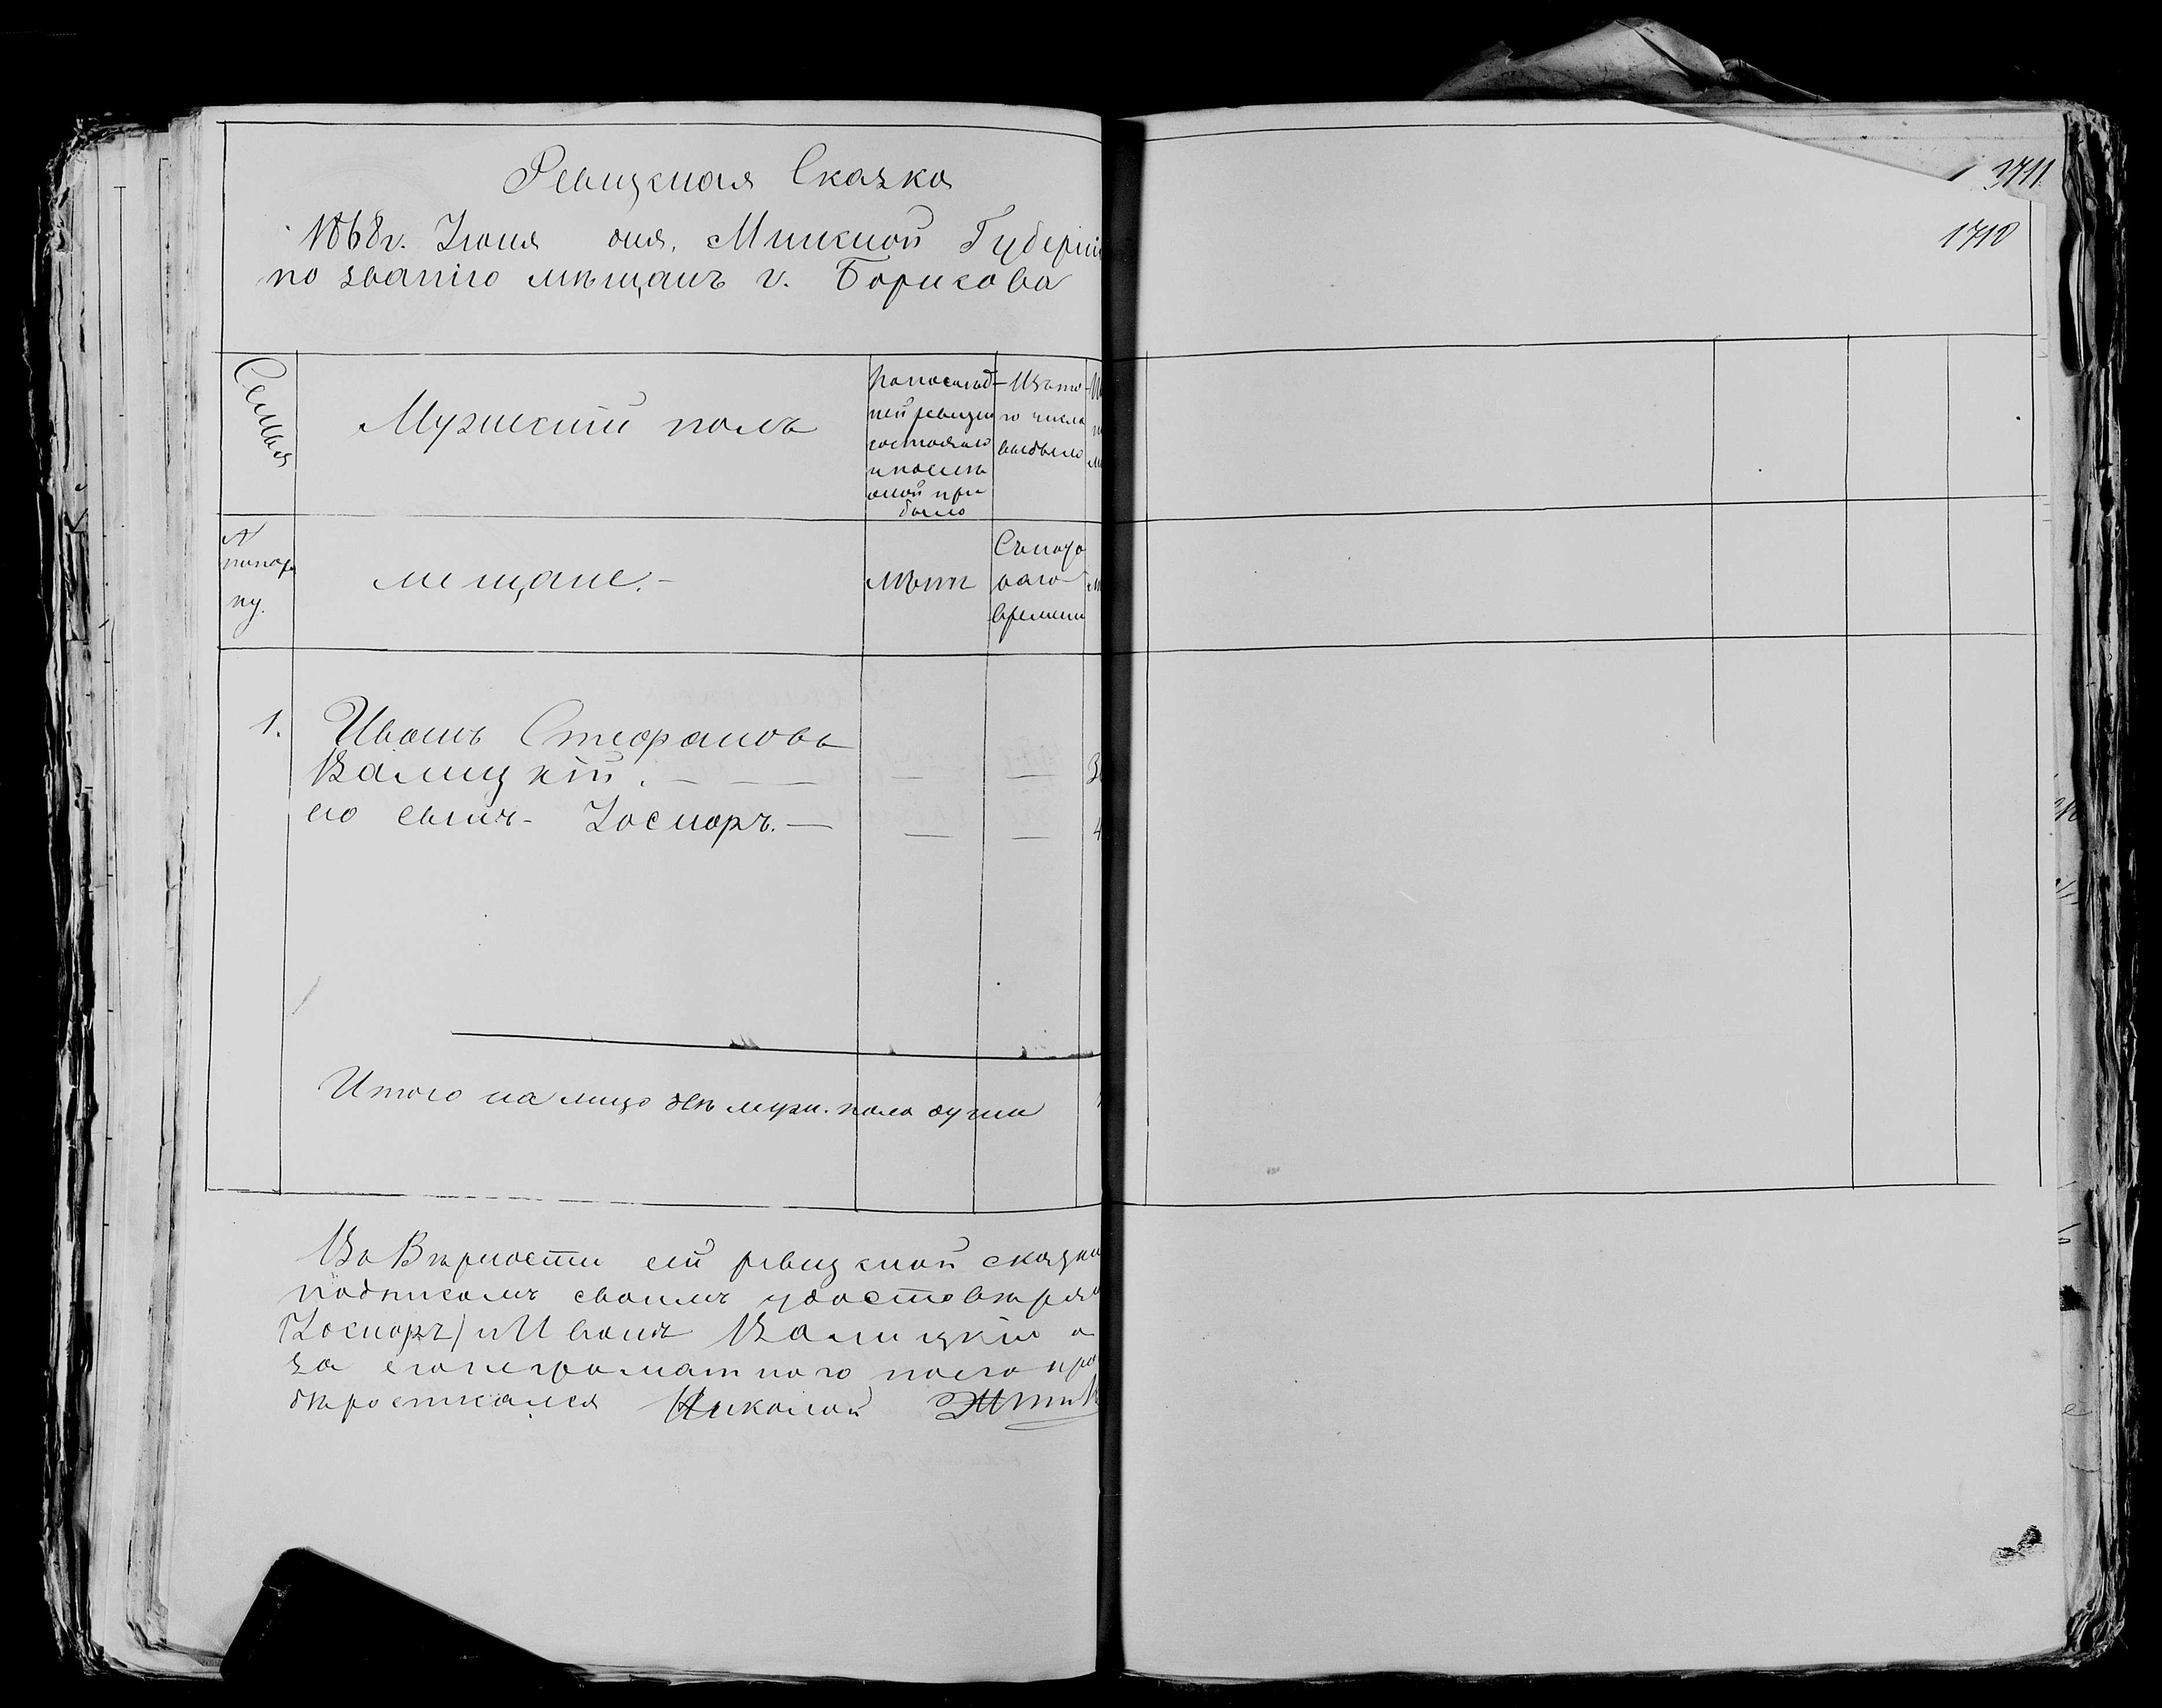 Ревизская Сказка
1868 г. Іюня дня. Минской Губерніи
по званію мѣщанъ г. Борисова
Семья
Мужескій полъ
По послѣд-
ней ревизіи
состояло
и послѣ
оной при
было
Изъ то-
го числа
выбыло
№
по поря
ку.
мещане.-
лѣтъ
Съ кото
раго
времени
1. Иванъ Стефановъ
Валицкій. — — —
его сынъ - Іосифъ. —
Итого на лицо муж. пола души
Въ Верности сей ревизской сказки
подписомъ своимъ удостовѣряю
(Іосифъ) и Иванъ Валицкій а
за его неграмотного по его про
Николай
3711
1710